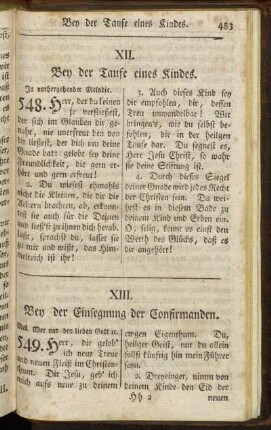 Bey der Taufe eines Kindes. 483
XII.
Bey der Taufe eines Kindes.
In vorhergehender Melodie.
548. Herr, der du keinen
je verstießest,
der sich im Glauben dir ge-
naht, nie unerfreut den von
dir ließest, der dich um deine
Gnade bat: gelobt sey deine
Freundlichkeit, die gern er-
hört und gern erfreut.
2. Du wiesest ehmahls
nicht die Kleinen, die dir die
Aeltern brachten, ab, erkann-
test sie auch für die Deinen
und ließest zu ihnen dich herab.
Laßt, sprachst du, lasset sie
zu mir und wißt, das Him-
melreich ist ihr!
3. Auch dieses Kind sey
dir empfohlen, dir, dessen
Treu unwandelbar! Wir
bringen's, wie du selbst be-
fohlen, dir in der heilgen
Taufe dar. Du segnest es,
Herr Jesu Christ, so wahr
sie deine Stiftung ist.
4. Durch dieses Siegel
deiner Gnade wird jedes Recht
der Christen sein. Du wei-
hest es in diesem Bade zu
deinem Kind und Erben ein.
O, selig, kenne es einst den
Werth des Glücks, daß es
dir angehört!
XIII.
Bey der Einsegnung der Confirmanden.
Mel. Wer nur den lieben Gott ꝛc.
549. Herr, dir gelob'
ich neue Treue
und neuen Fleiß im Christen-
thum. Dir Jesu, geb' ich
mich aufs neue zu deinem
ewgen Eigenthum. Du,
heilger Geist, nur du allein
sollst künftig hin mein Führer
seyn.
2. Dreyeiniger, nimm von
deinem Kinde den Eid der
Hh 2 neuen